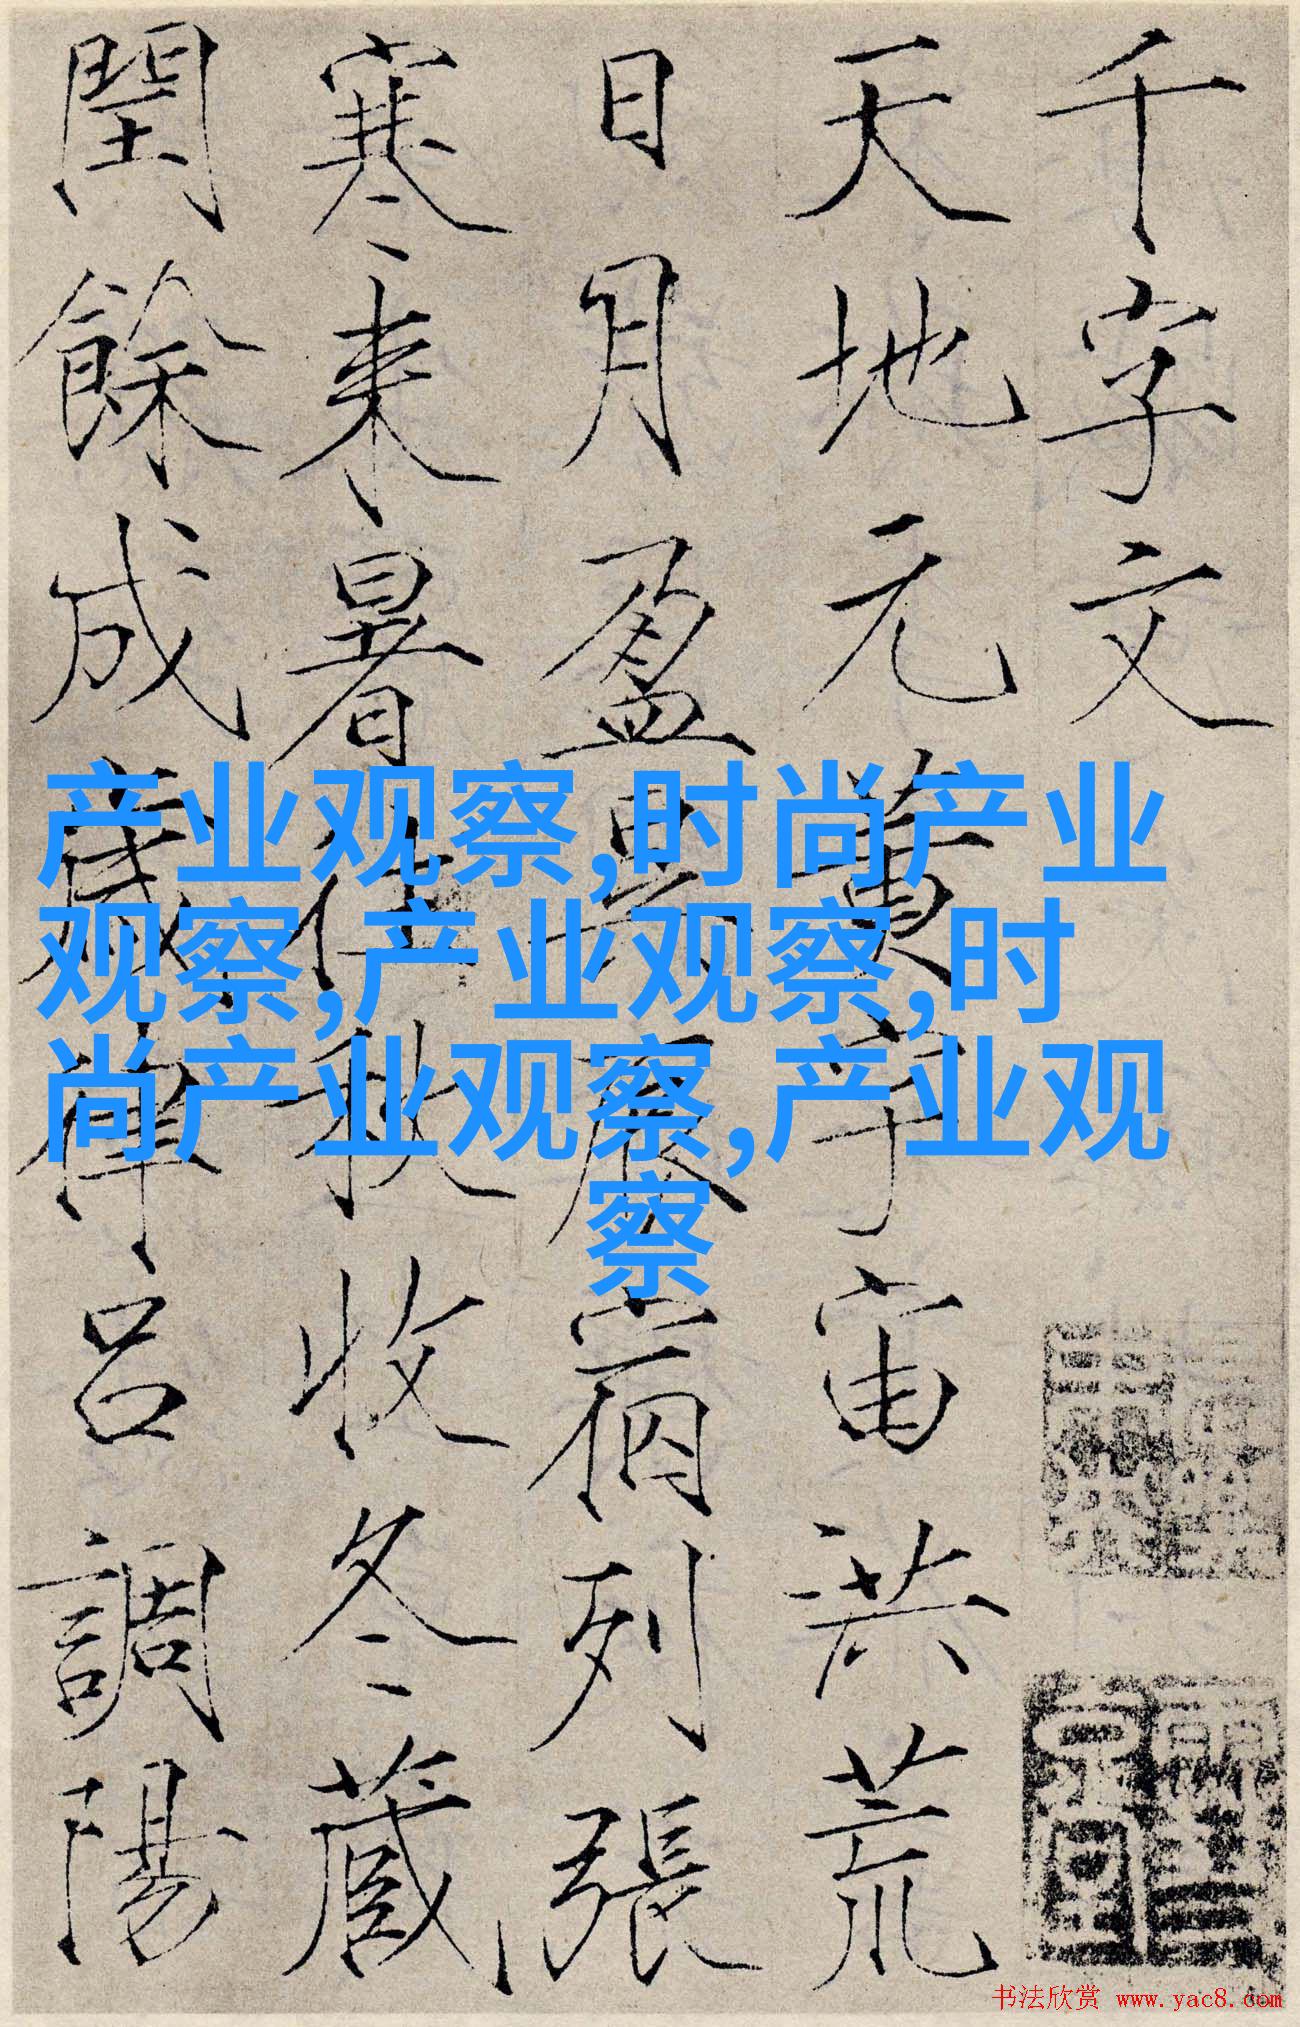 千字文
天地元黃宇宙洪荒
日月盈昃辰宿列張
寒来暑往秋收冬蔵
閏餘成歲律吕調陽
产业观察,时尚产业
观察,产业观察,时
尚产业观察,产业观
察
书法欣赏 www.yac8.com